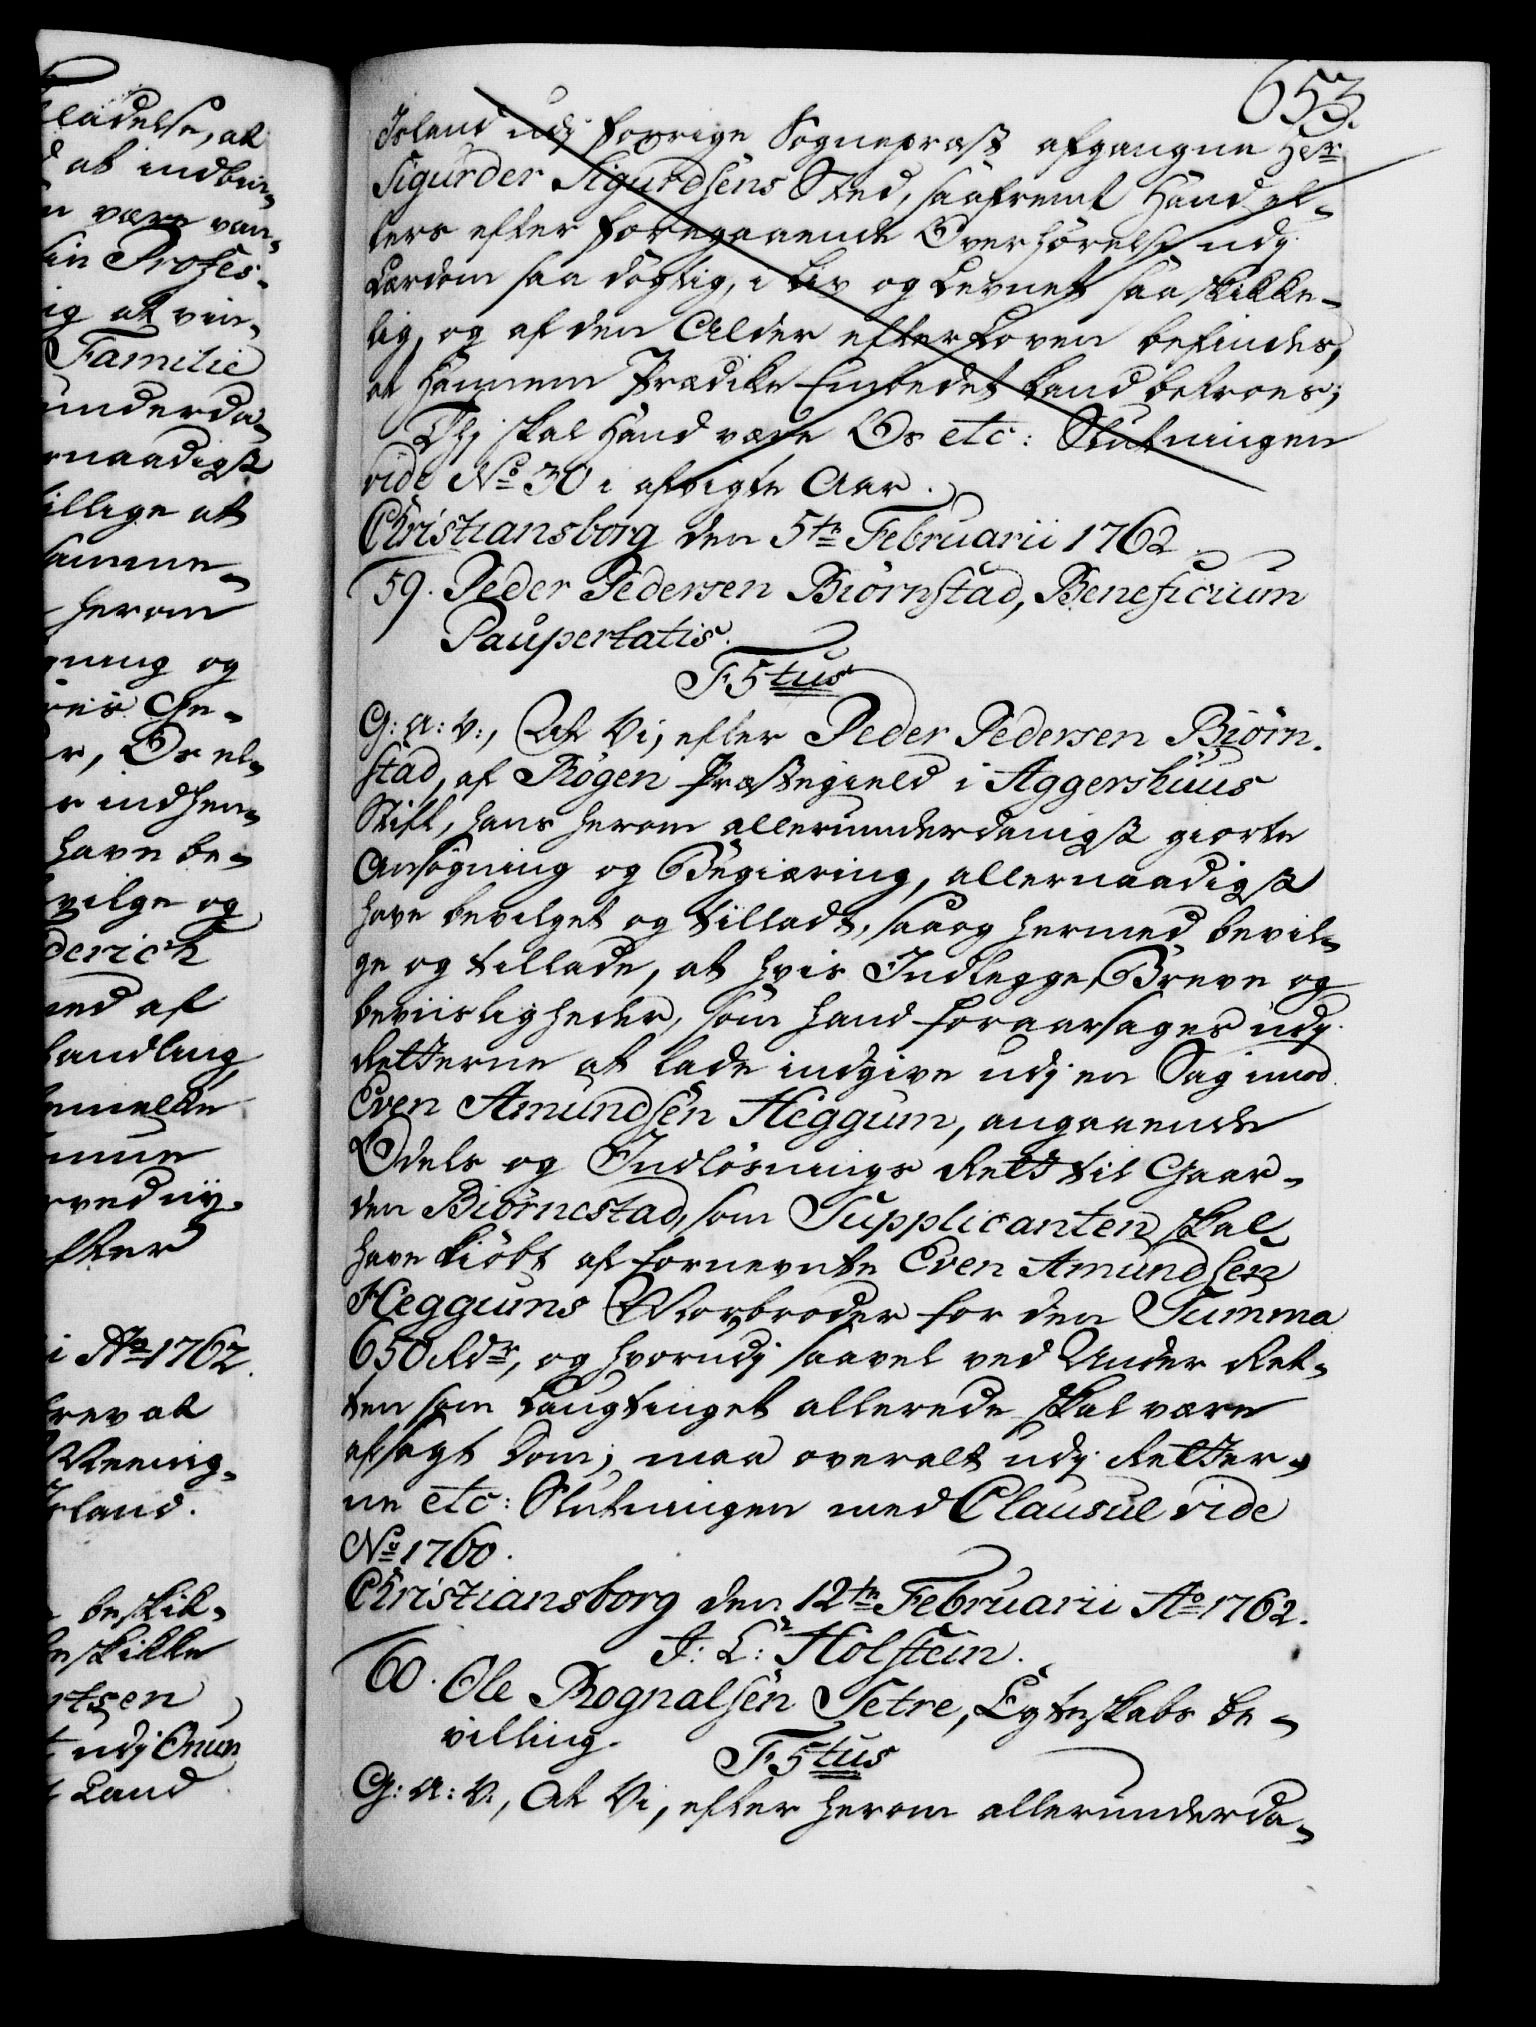 653.
Island udj forrige Sognepræst afgangne Her
Sigurder Sigurdsens Sted, saafremt Hand el-
lers efter foregaaende Overhörelse udj
Lærdom saa dögtig, i Liv og Levnet saa skikke-
lig, og af den Alder efter Loven befindes,
at Hannem Prædike Embedet kand betroes;
Thj skal Hand være Os etc: Slutningen
vide No 30 i afvigte Aar.
Christiansborg den 5te Februarii 1762
59. Peder Pedersen Biörnstad, Beneficium
Paupertatis.
F5tus
G: A: V:, At Vi, efter Peder Pedersen Biörn-
stad, af Rögen Præstegield i Aggershuus
Stift, hans herom allerunderdanigst giorte
Ansögning og Begiæring, allernaadigst
have bevilget og tilladt, saa og hermed bevil-
ge og tillade, at hvis Indlegge, Breve og
beviisligheder, som hand foraarsages udj
Retterne at lade indgive udj en Sag imod
Even Amundsen Heggum, angaaende
Odels og Indlösnings Rett til Gaar-
den Biörnestad, som Supplicanten skal
have kiöbt af fornevnte Even Amundsen
Heggums Morbroder for den Summa
650 Rdr, og hvorudj saavel ved Under Ret-
ten som Laugtinget allerede skal være
afsagt Dom; maa overalt udj Retter-
ne etc: Slutningen med Clausul vide
No 1760.
Christiansborg den 12te Februarii Ao 1762.
J: L: Holstein.
60. Ole Rognalsen Setre, Egteskabs be-
villing.
F5tus
G: A: V:, At Vi, efter herom allerunderda-
ladelse, at
at indbin-
være van-
sin Profes-
ig at vin-
Familie
underda-
rnaadigst
tillige at
samme-
herom
gning og
, Os el-
r indhen-
have be-
vilge og
derich
med af
handling
emelte
efter
i Ao 1762.
brev at
Island.
beskik-
beskikke
rtsen
udj Onun
Land